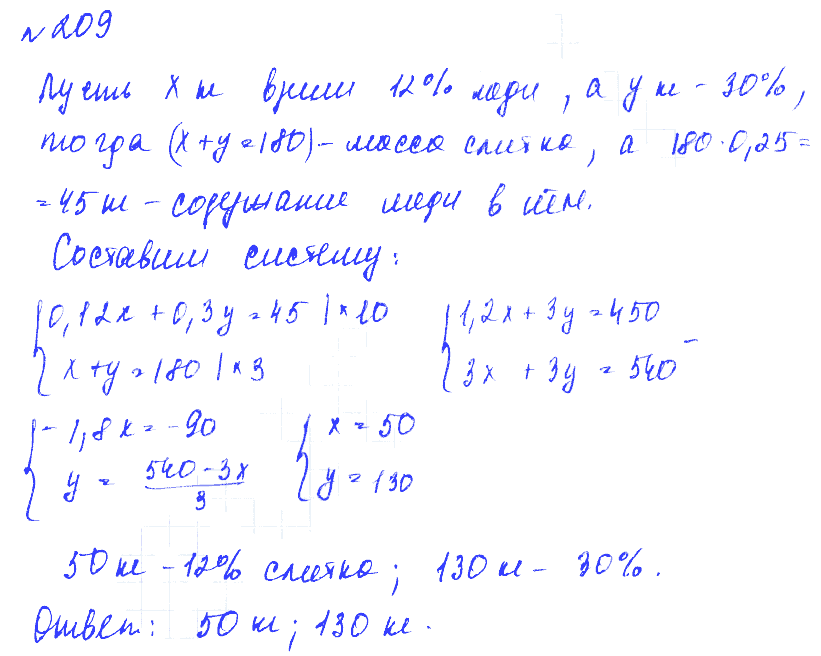 № 209
Пусть x кг взяли 12% меди, а y кг - 30%,
тогда (x+y=180) - масса слитка, а 180·0,25=
=45 кг - содержание меди в нём.
Составим систему:
{0,12x + 0,3y = 45 | ×10 {1,2x + 3y = 450
x + y = 180 | × 3 3x + 3y = 540 -
{-1,8x = -90 {x = 50
y = (540-3x)/3 y = 130
50 кг - 12% слитка; 130 кг - 30%.
Ответ: 50 кг; 130 кг.